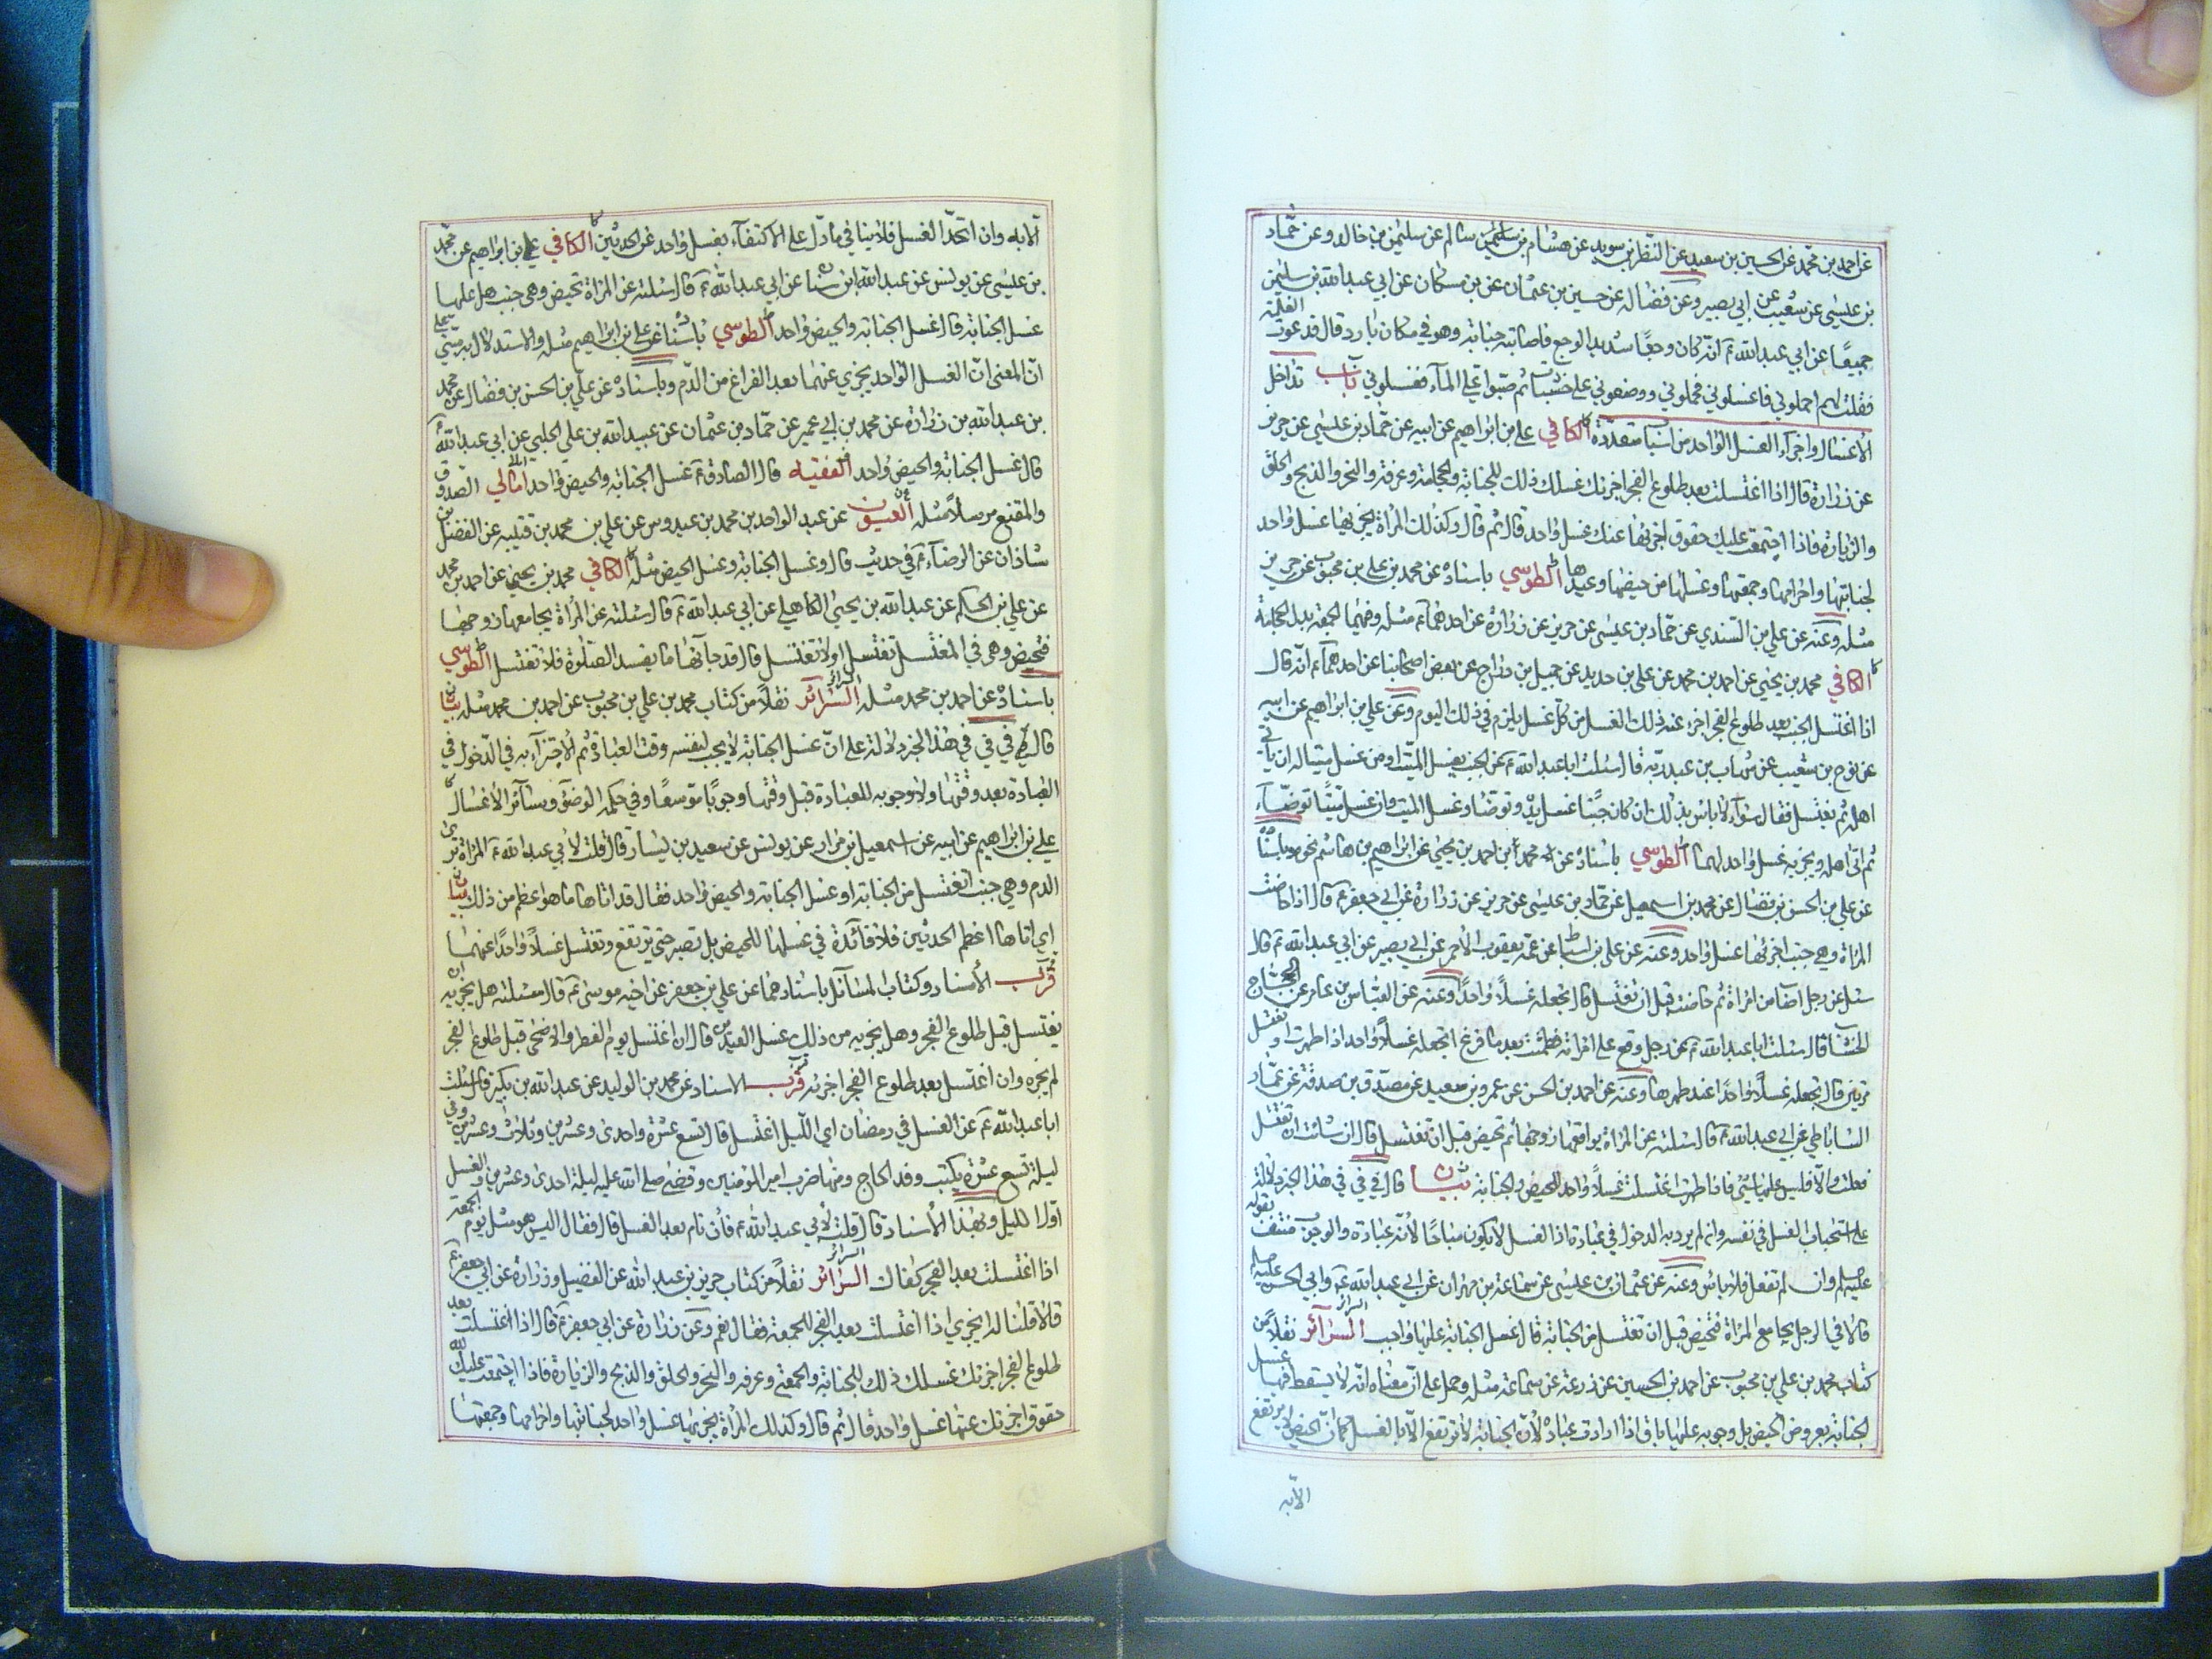 عن احمد بن محمد عن الحسين بن سعيد عن النظر بن سويد عن هشام بن سالم عن سليمن بن خالد وعن حماد
بن عليسى عن شعيب عن ابي بصير وعن فضاله عن حسين بن عثمان عن بن مسكان عن ابي عبد الله بن سليمن
جميعًا عن ابي عبد الله ع انه كان وجعًا شديد الوجع فاصابته جنابة وهو في مكان بارد قال فدعوت الغلمة
فقلت لهم احملوني فاغسلوني فحملوني ووضعوني على خشبات ثم صبوا علي الماء فغسلوني باب تداخل
الاغسال واجزاء الغسل الواحد من اسباب متعددة الكافي علي بن ابراهيم عن ابيه عن حماد بن عليسى عن حريز
عن زرارة قال اذا اغتسلت بعد طلوع الفجر اجزئك غسلك ذلك للجنابة والحجامة وعرفة والنحر والذبح والحلق
والزيارة فاذا اجتمعت عليك حقوق اجزئها عنك غسل واحد قال ثم قال وكذلك المراة يجزيها غسل واحد
لجنابتها واحرامها وجمعتها وغسلها من حيضها وعيدها الطوسي باسناده عن محمد بن علي بن محبوب عن حريز
مثله وعنه عن علي بن السندي عن حماد بن عليسى عن حريز عن زرارة عن احدهما ع مثله وفيها الجمعة بدل الحجامة
الكافي محمد بن يحيى عن احمد بن محمد عن علي بن حديد عن جميل بن دراج عن بعض اصحابنا عن احدهما ع انه قال
اذا اغتسل الجنب بعد طلوع الفجر اجزء عنه ذلك الغسل من كل غسل يلزم في ذلك اليوم وعن علي بن ابراهيم عن ابيه
عن نوح بن شعيب عن شهاب بن عبد ربه قال سئلت ابا عبد الله ع عن الجنب يغسل الميت او من غسل ميتا له ان ياتي
اهله ثم يغتسل فقال سواء لا باس بذلك ان كان جنبًا غسل يده وتوضا وغسل الميت وان غسل ميتًا توضاء
ثم اتى اهله ويجزيه غسل واحد لهما الطوسي باسناده عن محمد ابن احمد بن يحيى عن ابراهيم بن هاشم نحوه وباسناده
عن علي بن الحسن بن فضال عن محمد بن اسمعيل عن حماد بن عليسى عن حريز عن زرارة عن ابي جعفر ع قال اذا حاضت
المراة وهي جنب اجزئها غسل واحد وعنه عن علي بن اسباط عن عمه يعقوب الاحمر عن ابي بصير عن ابي عبد الله ع قال
سئل عن رجل اصاب من امراة ثم حاضت قبل ان تغتسل قال تجعله غسلاً واحدًا وعنه عن العباس بن عامر عن الحجاج
الخشاب قال سئلت ابا عبد الله ع عن رجل وقع على امراته فطمثت بعد ما فرغ اتجعله غسلاً واحد اذا طهرت او تغتسل
مرتين قال تجعله غسلاً واحدًا عند طهرها وعنه عن احمد بن الحسن عن عمرو بن سعيد عن مصدق بن صدقة عن عمار
الساباطي عن ابي عبد الله ع قال سئلته عن المراة يواقعها زوجها ثم تحيض قبل ان تغتسل قال ان شائت ان تغتسل
فعلت والا فليس عليها شئ فاذا طهرت اغتسلت غسلاً واحدا للحيض والجنابة تبيان قال في في في هذا الخبر دلالة
على استحباب الغسل في نفسه وان لم يرد به الدخول في عبادة اذا الغسل لا يكون مباحًا لانه عبادة والوجوب منتف بقوله
عليه لم وان لم تفعل فلا باس وعنه عن عثمان بن عليسى عن سماعة بن مهران عن ابي عبد الله ع وابي الحسن عليه
قالا في الرجل يجامع المراة فتحيض قبل ان تغتسل من الجنابة قال غسل الجنابة عليها واجب السرائر نقلاً عن
كتاب محمد بن علي بن محبوب عن احمد بن الحسين عن زرعة عن سماعة مثله وحمل على ان معناه انه لا يسقط فيها غسل
الجنابة بعروض الحيض بل وجوبه عليها باق اذا ارادت عبادة لان الجنابة لا ترتفع الا بالغسل كما ان الحيض لا يرتفع
الا به
الا به وان اتحدا الغسل فلا ينافي ما دل على الاكتفاء بغسل واحد عن الحدثين الكافي علي بن ابراهيم عن محمد
بن عليسى عن يونس عن عبد الله ابن سنان عن ابي عبد الله ع قال سئلته عن المراة تحيض وهي جنب هل عليها
غسل الجنابة قال غسل الجنابة والحيض واحد الطوسي باسناده عن علي بن ابراهيم مثله والاستدلال به مبني على
ان المعنى ان الغسل الواحد يجزي عنهما بعد الفراغ من الدم وباسناده عن علي بن الحسن بن فضال عن محمد
بن عبد الله بن زرارة عن محمد بن ابي عمير عن حماد بن عثمان عن عبيد الله بن علي الحلبي عن ابي عبد الله ع
قال غسل الجنابة والحيض واحد الفقيه قال الصادق ع غسل الجنابة والحيض واحد امالي الصدوق
والمقنع مرسلاً مثله العيون عن عبد الواحد بن محمد بن عبدوس عن علي بن محمد بن قتيبه عن الفضل بن
شاذان عن الرضا ع في حديث قال وغسل الجنابة وغسل الحيض مثله الكافي محمد بن يحيى عن احمد بن محمد
عن علي بن الحكم عن عبد الله بن يحيى الكاهلي عن ابي عبد الله ع قال سئلته عن المراة يجامعها زوجها
فتحيض وهي في المغتسل تغتسل او لا تغتسل قال قد جائها ما يفسد الصلوة فلا تغتسل الطوسي
باسناده عن احمد بن محمد مثله السرائر نقلاً من كتاب محمد بن علي بن محبوب عن احمد بن محمد مثله بيان
قال في في في هذا الخبر دلالة على ان غسل الجنابة لا يجب لنفسه وقت العبادة ثم الاجتزاء به في الدخول في
العبادة بعد وقتها ولا وجوبه للعبادة قبل وقتها وجوبًا موسعًا وفي حكمه الوضوء وسائر الاغسال
علي بن ابراهيم عن ابيه عن اسمعيل بن مرار عن يونس عن سعيد بن يسار قال قلت لابي عبد الله ع المراة ترى
الدم وهي جنب اتغتسل من الجنابة او غسل الجنابة والحيض واحد فقال قد اتاها ما هو اعظم من ذلك بيان
اي اتاها اعظم الحدثين فلا فائدة في غسلها للحيض بل تصبر حتى يرتفع وتغتسل غسلاً واحدًا عنهما
قرب الاسناد وكتاب المسائل باسنادهما عن علي بن جعفر عن اخيه موسى ع قال سئلته هل يجزيه ان
يغتسل قبل طلوع الفجر وهل يجزيه من ذلك غسل العيدين قال ان اغتسل يوم الفطر والاضحى قبل طلوع الفجر
لم يجزه وان اغتسل بعد طلوع الفجر اجزئه قرب الاسناد عن محمد بن الوليد عن عبد الله بن بكير قال سئلت
ابا عبد الله ع عن الغسل في رمضان اي الليل اغتسل قال تسع عشرة واحدى وعشرين وثلاث وعشرين وفي
ليلة تسع عشرة يكتب وفد الحاج وفيها ضرب امير المؤمنين وقضى صلى الله عليه ليلة احدى وعشرين والغسل
اول الليل وبهذا الاسناد قال قلت لابي عبد الله ع فان نام بعد الغسل قال فقال اليس هو مثل يوم الجمعة
اذا اغتسلت بعد الفجر كفاك السرائر نقلاً من كتاب حريز بن عبد الله عن الفضيل وزرارة عن ابي جعفر ع
قالا قلنا له ايجزي اذا اغتسلت بعد الفجر للجمعة فقال نعم وعن زرارة عن ابي جعفر ع قال اذا اغتسلت بعد
طلوع الفجر اجزئك غسلك ذلك للجنابة والجمعة وعرفه والنحر والحلق والذبح والزيارة فاذا اجتمعت لله عليك
حقوق اجزئك عنها غسل واحد قال ثم قال وكذلك المراة يجزيها غسل واحد لجنابتها واحرامها وجمعتها